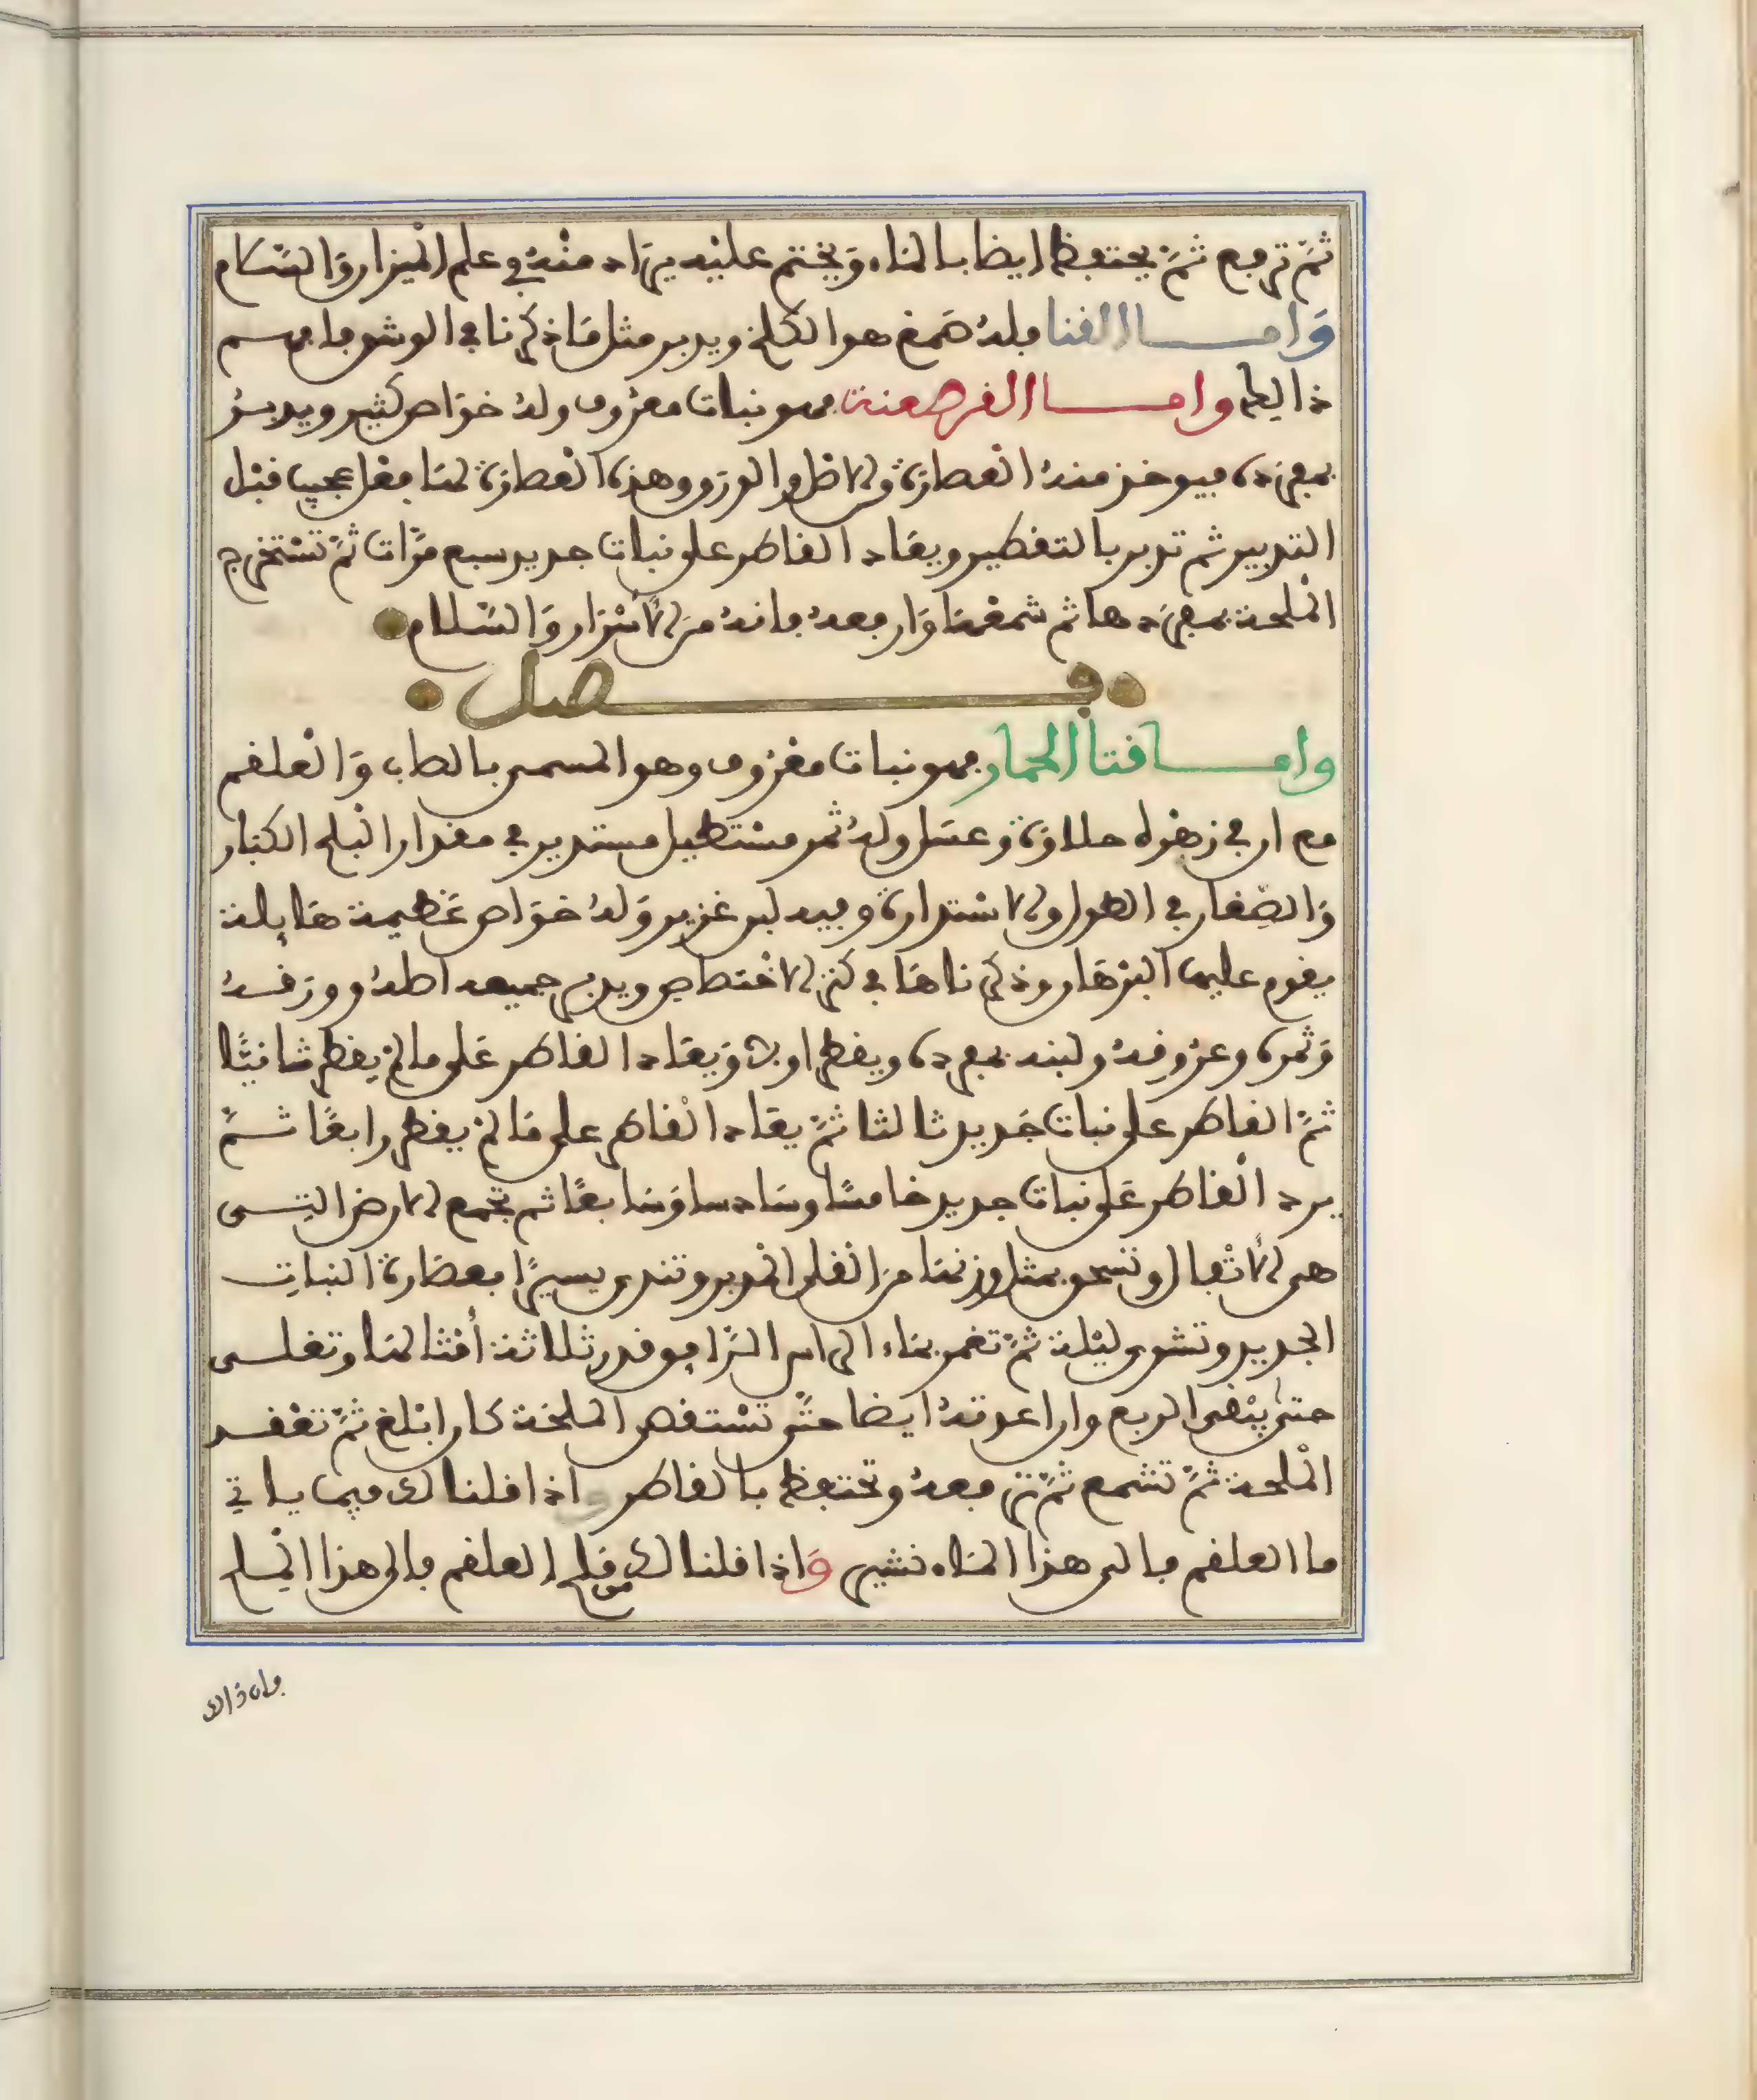 ثمّ ترفع ثمّ يحتفظ ايضا بالماء ويختم عليه يراد منه في علم الميزان والسّلام
وامـــا القنا فله صمغ هو الكلخ ويدبر مثل ما ذكرنا في الوشق فافهـــم
ذالك وامـــا القرصعنة فهو نبات معروف وله خواص كثير ويدبـــر
بمفرده فيوخذ منه العصارة والاصل والورق وهذه العصارة لها فعل عجيب قبل
التدبير ثم تدبر بالتقطير ويعاد القاطر على نبات جديد سبع مرّات ثمّ تستخرج
الملحة بمفردها ثم شمعها وارفعه فانه من الأسرار والسّلام
فـــصل
وامـــا قثا الحمار فهو نبات معروف وهو المسمى بالصاب والعلقم
مع ان في زهره حلاوة وعسل وله ثمر مستطيل مستدير في مقدار البلح الكبار
والصغار في الطول والاستدارة وفيه لبن غزير وله خواص عظيمة هايلة
يقوم عليها البرهان وذكرناها في كنز الاختصاص ويدبر جميعه اصله وورقـــه
وثمره وعروقه ولبنه بمفرده ويقطر اولا ويعاد القاطر على ما لم يقطر ثانيًا
ثمّ القاطر على نبات جديد ثالثا ثمّ يعاد القاطر على ما لم يقطر رابعًا ثـــمّ
يرد القاطر على نبات جديد خامسًا وسادسا وسابعًا ثم تجمع الارض التـــى
هى الأثفال وتسحق بمثل وزنها من القلى المدبر وتندى يسيرًا بعصارة النبات
الجديد وتشوى ليلة ثمّ تغمر بماء الراس الزايو قدر ثلاثة أمثالها وتغلـــى
حتى ينقى الربع وان اعدته ايضا حتّى تستقصى الملحة كان ابلغ ثمّ تعقـــد
الملحة ثمّ تشمع ثمّ ترفعه وتحتفظ بالقاطر واذا قلنا لك فيما ياتي
ما العلقم فالى هذا الماء نشير واذا قلنا لك ملح العلقم فالى هذا الملح
فان ذالك